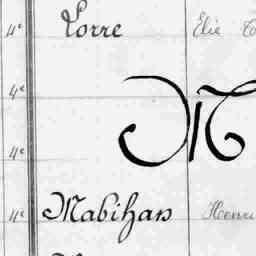 4e Lorre Élie
4e
M
4e
11e Mabihan Henri